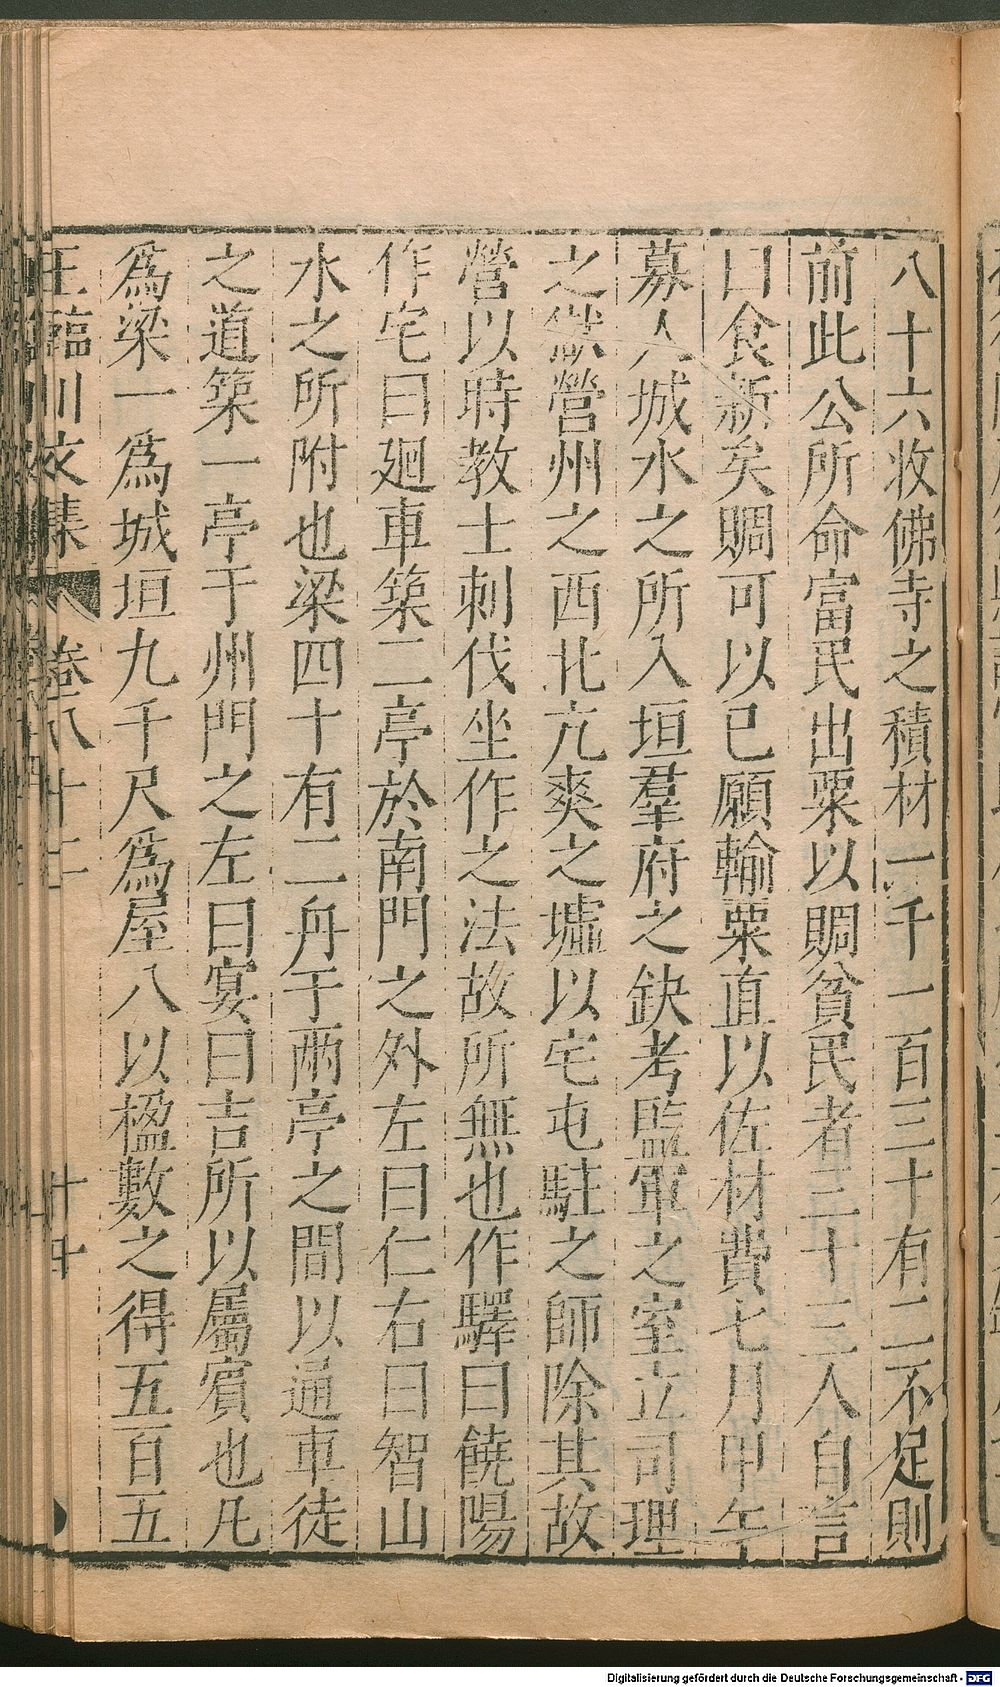 八十六收佛寺之積材一千一百三十有二不足則
前此公所命富民出粟以賙貧民者三十三人自言
曰食新矣賙可以已願輸粟直以佐材費七月甲午
募人城水之所入垣羣府之缺考監軍之室立司理
之獄營州之西北亢爽之墟以宅屯駐之師除其故
營以時教士刺伐坐作之法故所無也作驛曰饒陽
作宅曰廻車築二亭於南門之外左曰仁右曰智山
水之所附也梁四十有二舟于兩亭之間以通車徒
之道築一亭于州門之左曰宴曰吉所以屬賓也凡
爲梁一爲城垣九千尺爲屋八以楹數之得五百五
王臨川文集 卷八十二 十四
Digitalisierung gefördert durch die Deutsche Forschungsgemeinschaft - DFG